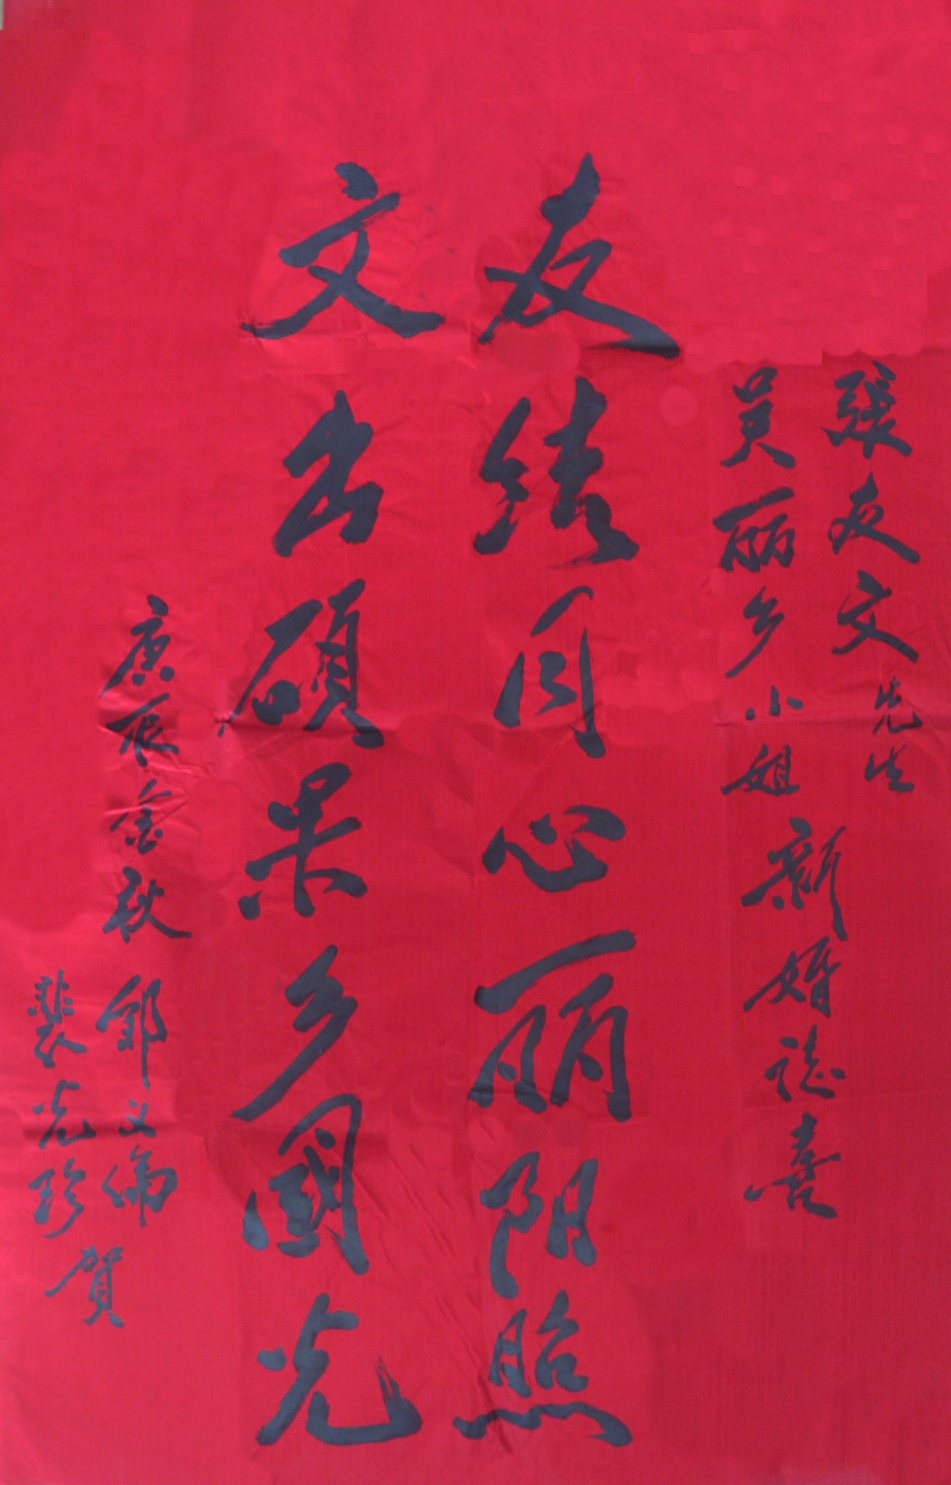 張友文先生
吴丽乡小姐
新婚誌喜
友结同心丽阳照
文出碩果乡國光
庚辰金秋
鄒文倫
裴光珍
賀